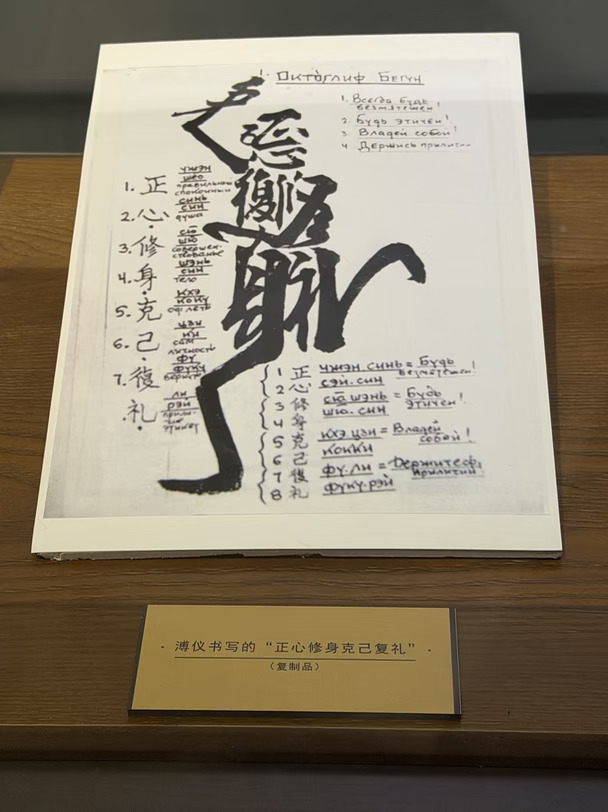 1. Октоглиф Бегун
1. Всегда будь
безмятежен!
2. Будь этичен!
3. Владей собой!
4. Держись приличи
1. 正
чжэн
сѐо
правильный
спокойный
2. 心
синь
син
душа
3. 修
сю
шю
совершен-
ствование
4. 身
шэнь
син
тело
5. 克
кхэ
коку
одолеть
6. 己
цзи
ки
сам
личность
7. 復
фу
фуку
вернуть
礼
ли
рэй
прили-
чие
этикет
正心修身克己復礼
1 正 чжэн.синь = Будь
безмятежен!
2 心 сэй.син
3 修 сю шэнь = Будь
этичен!
4 身 шю.син
5 克 кхэ цзи = Владей
собой!
6 己 кокки
7 復 фу.ли = Держитесь
приличий
8 礼 фуку.рэй
· 溥仪书写的“正心修身克己复礼” ·
（复制品）